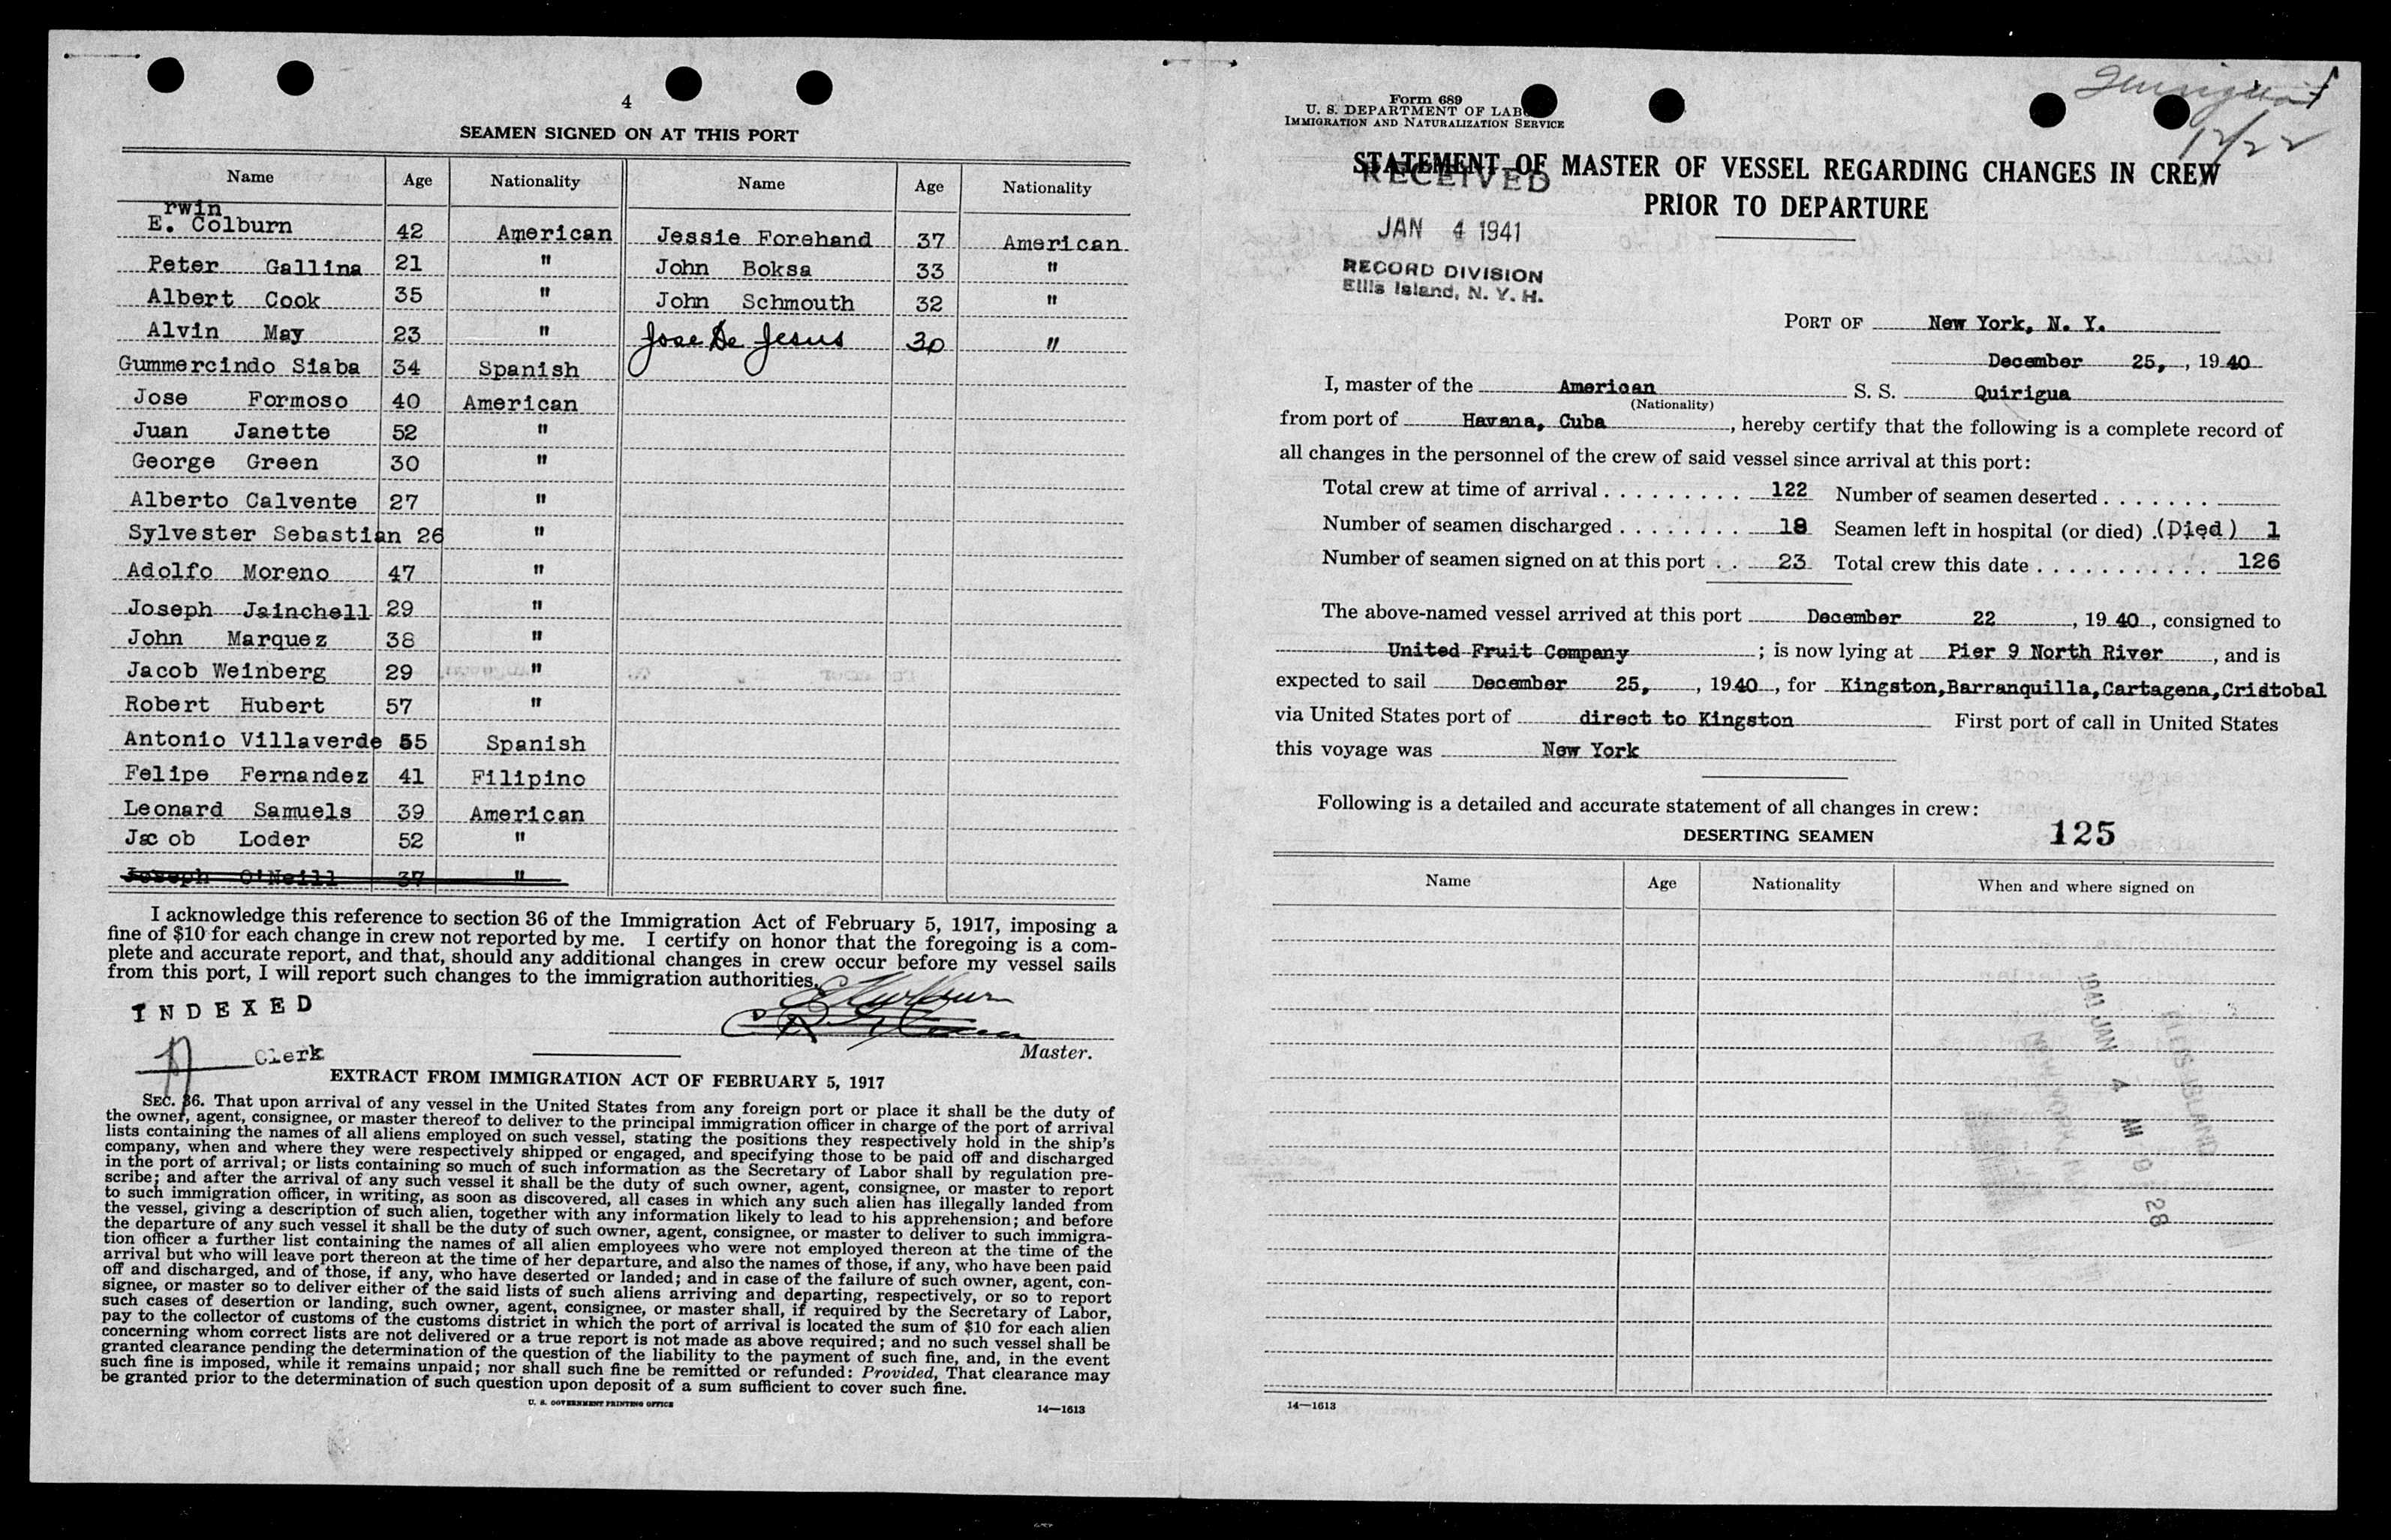 4
SEAMEN SIGNED ON AT THIS PORT
Name Age Nationality Name Age Nationality
rwin
E. Colburn 42 American Jessie Forehand 37 American
Peter Gallina 21 " John Boksa 33 "
Albert Cook 35 " John Schmouth 32 "
Alvin May 23 " Jose De Jesus 30 "
Gummercindo Siaba 34 Spanish
Jose Formoso 40 American
Juan Janette 52 "
George Green 30 "
Alberto Calvente 27 "
Sylvester Sebastian 26 "
Adolfo Moreno 47 "
Joseph Jainchell 29 "
John Marquez 38 "
Jacob Weinberg 29 "
Robert Hubert 57 "
Antonio Villaverde 55 Spanish
Felipe Fernandez 41 Filipino
Leonard Samuels 39 American
Jacob Loder 52 "
Joseph O'Neill 37 "
I acknowledge this reference to section 36 of the Immigration Act of February 5, 1917, imposing a
fine of $10 for each change in crew not reported by me. I certify on honor that the foregoing is a com-
plete and accurate report, and that, should any additional changes in crew occur before my vessel sails
from this port, I will report such changes to the immigration authorities.
INDEXED
Clerk
Master.
EXTRACT FROM IMMIGRATION ACT OF FEBRUARY 5, 1917
SEC. 36. That upon arrival of any vessel in the United States from any foreign port or place it shall be the duty of
the owner, agent, consignee, or master thereof to deliver to the principal immigration officer in charge of the port of arrival
lists containing the names of all aliens employed on such vessel, stating the positions they respectively hold in the ship's
company, when and where they were respectively shipped or engaged, and specifying those to be paid off and discharged
in the port of arrival; or lists containing so much of such information as the Secretary of Labor shall by regulation pre-
scribe; and after the arrival of any such vessel it shall be the duty of such owner, agent, consignee, or master to report
to such immigration officer, in writing, as soon as discovered, all cases in which any such alien has illegally landed from
the vessel, giving a description of such alien, together with any information likely to lead to his apprehension; and before
the departure of any such vessel it shall be the duty of such owner, agent, consignee, or master to deliver to such immigra-
tion officer a further list containing the names of all alien employees who were not employed thereon at the time of the
arrival but who will leave port thereon at the time of her departure, and also the names of those, if any, who have been paid
off and discharged, and of those, if any, who have deserted or landed; and in case of the failure of such owner, agent, con-
signee, or master so to deliver either of the said lists of such aliens arriving and departing, respectively, or so to report
such cases of desertion or landing, such owner, agent, consignee, or master shall, if required by the Secretary of Labor,
pay to the collector of customs of the customs district in which the port of arrival is located the sum of $10 for each alien
concerning whom correct lists are not delivered or a true report is not made as above required; and no such vessel shall be
granted clearance pending the determination of the question of the liability to the payment of such fine, and, in the event
such fine is imposed, while it remains unpaid; nor shall such fine be remitted or refunded: Provided, That clearance may
be granted prior to the determination of such question upon deposit of a sum sufficient to cover such fine.
U. S. GOVERNMENT PRINTING OFFICE
14—1613
Form 689
U. S. DEPARTMENT OF LABOR
IMMIGRATION AND NATURALIZATION SERVICE
12/22
STATEMENT OF MASTER OF VESSEL REGARDING CHANGES IN CREW
PRIOR TO DEPARTURE
RECEIVED
JAN 4 1941
RECORD DIVISION
Ellis Island, N. Y. H.
PORT OF New York, N. Y.
December 25, , 1940
I, master of the American S. S. Quirigua
(Nationality)
from port of Havana, Cuba , hereby certify that the following is a complete record of
all changes in the personnel of the crew of said vessel since arrival at this port:
Total crew at time of arrival . . . . . . . . . 122 Number of seamen deserted . . . . . . .
Number of seamen discharged . . . . . . . . 18 Seamen left in hospital (or died) .(Died) 1
Number of seamen signed on at this port . . 23 Total crew this date . . . . . . . . . . . 126
The above-named vessel arrived at this port December 22 , 1940 , consigned to
United Fruit Company ; is now lying at Pier 9 North River , and is
expected to sail December 25, , 1940 , for Kingston,Barranquilla,Cartagena,Cristobal
via United States port of direct to Kingston First port of call in United States
this voyage was New York
Following is a detailed and accurate statement of all changes in crew:
DESERTING SEAMEN 125
Name Age Nationality When and where signed on
ELLIS ISLAND
1941 JAN 4 AM 9 28
NEW YORK
14—1613